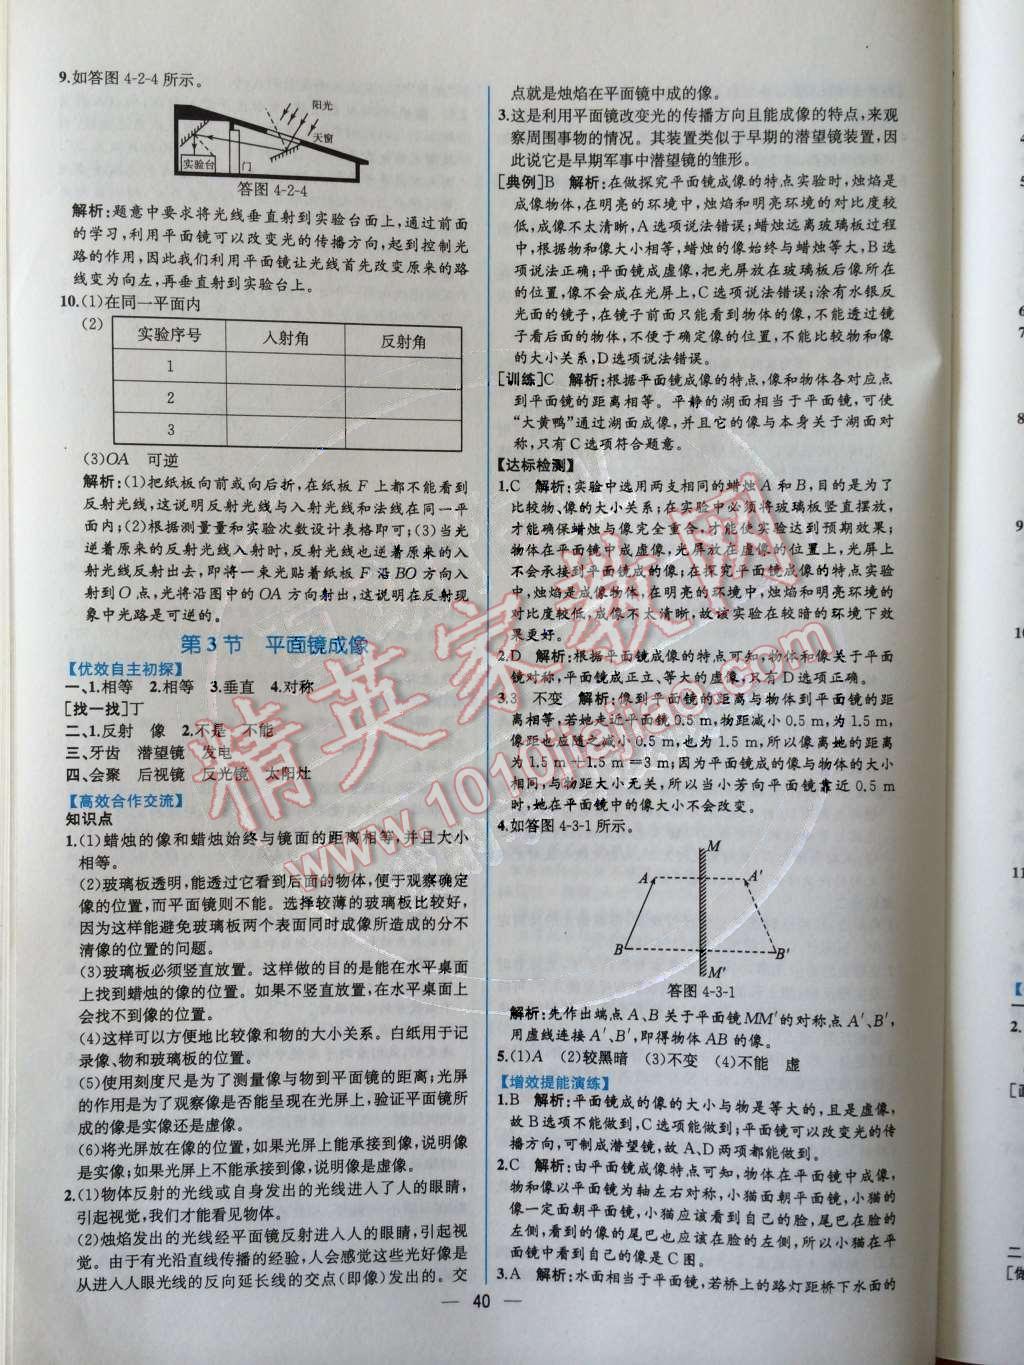 9.如答图 4-2-4 所示。
阳光
天窗
实验台
门
答图 4-2-4
解析:题意中要求将光线垂直射到实验台面上,通过前面
的学习,利用平面镜可以改变光的传播方向,起到控制光
路的作用,因此我们利用平面镜让光线首先改变原来的路
线变为向左,再垂直射到实验台上。
10.(1)在同一平面内
(2)
实验序号 入射角 反射角
1
2
3
(3)OA 可逆
解析:(1)把纸板向前或向后折,在纸板 F 上都不能看到
反射光线,这说明反射光线与入射光线和法线在同一平
面内;(2)根据测量量和实验次数设计表格即可;(3)当光
逆着原来的反射光线入射时,反射光线也逆着原来的入
射光线反射出去,即将一束光贴着纸板 F 沿 BO 方向入
射到 O 点,光将沿图中的 OA 方向射出,这说明在反射现
象中光路是可逆的。
第 3 节 平面镜成像
【优效自主初探】
一、1.相等 2.相等 3.垂直 4.对称
[找一找]丁
二、1.反射 像 2.不是 不能
三、牙齿 潜望镜 发电
四、会聚 后视镜 反光镜 太阳灶
【高效合作交流】
知识点
1.(1)蜡烛的像和蜡烛始终与镜面的距离相等,并且大小
相等。
(2)玻璃板透明,能透过它看到后面的物体,便于观察确定
像的位置,而平面镜则不能。选择较薄的玻璃板比较好,
因为这样能避免玻璃板两个表面同时成像所造成的分不
清像的位置的问题。
(3)玻璃板必须竖直放置。这样做的目的是能在水平桌面
上找到蜡烛的像的位置。如果不竖直放置,在水平桌面上
会找不到像的位置。
(4)这样可以方便地比较像和物的大小关系。白纸用于记
录像、物和玻璃板的位置。
(5)使用刻度尺是为了测量像与物到平面镜的距离;光屏
的作用是为了观察像是否能呈现在光屏上,验证平面镜所
成的像是实像还是虚像。
(6)将光屏放在像的位置,如果光屏上能承接到像,说明像
是实像;如果光屏上不能承接到像,说明像是虚像。
2.(1)物体反射的光线或自身发出的光线进入了人的眼睛,
引起视觉,我们才能看见物体。
(2)烛焰发出的光线经平面镜反射进入人的眼睛,引起视
觉。由于有光沿直线传播的经验,人会感觉这些光好像是
从进入人眼光线的反向延长线的交点(即像)发出的。交
点就是烛焰在平面镜中成的像。
3.这是利用平面镜改变光的传播方向且能成像的特点,来观
察周围事物的情况。其装置类似于早期的潜望镜装置,因
此说它是早期军事中潜望镜的雏形。
[典例]B 解析:在做探究平面镜成像的特点实验时,烛焰是
成像物体,在明亮的环境中,烛焰和明亮环境的对比度较
低,成像不太清晰,A选项说法错误;蜡烛远离玻璃板过程
中,根据物和像大小相等,蜡烛的像始终与蜡烛等大,B选
项说法正确;平面镜成虚像,把光屏放在玻璃板后像所在
的位置,像不会成在光屏上,C选项说法错误;涂有水银反
光面的镜子,在镜子前面只能看到物体的像,不能透过镜
子看后面的物体,不便于确定像的位置,不能比较物和像
的大小关系,D选项说法错误。
[训练]C 解析:根据平面镜成像的特点,像和物体各对应点
到平面镜的距离相等。平静的湖面相当于平面镜,可使
“大黄鸭”通过湖面成像,并且它的像与本身关于湖面对
称,只有 C 选项符合题意。
【达标检测】
1.C 解析:实验中选用两支相同的蜡烛 A 和 B,目的是为了
比较物、像的大小关系;在实验中必须将玻璃板竖直摆放,
才能确保蜡烛与像完全重合,才能使实验达到预期效果;
物体在平面镜中成虚像,光屏放在虚像的位置上,光屏上
不会承接到平面镜成的像;在探究平面镜成像的特点实验
中,烛焰是成像物体,在明亮的环境中,烛焰和明亮环境的
对比度较低,成像不太清晰,故该实验在较暗的环境下效
果更好。
2.D 解析:根据平面镜成像的特点可知,物体和像关于平面
镜对称,平面镜成正立、等大的虚像,只有 D 选项正确。
3.3 不变 解析:像到平面镜的距离与物体到平面镜的距
离相等,若她走近平面镜 0.5 m,物距减小 0.5 m,为 1.5 m,
像距也应随之减小 0.5 m,也为 1.5 m,所以像离她的距离
为 1.5 m+1.5 m=3 m;因为平面镜成的像与物体的大小
相同,与物距大小无关,所以当小芳向平面镜靠近 0.5 m
时,她在平面镜中的像大小不会改变。
4.如答图 4-3-1所示。
M
A A′
B B′
M′
答图 4-3-1
解析:先作出端点 A、B 关于平面镜MM′的对称点 A′、B′,
用虚线连接 A′、B′,即得物体 AB 的像。
5.(1)A (2)较黑暗 (3)不变 (4)不能 虚
【增效提能演练】
1.B 解析:平面镜成的像的大小与物是等大的,且是虚像,
故 B 选项不能做到,C 选项能做到;平面镜可以改变光的传
播方向,可制成潜望镜,故 A、D 两项都能做到。
2.C 解析:由平面镜成像特点可知,物体在平面镜中成像,
物和像以平面镜为轴左右对称,小猫面朝平面镜,小猫的
像一定面朝平面镜,小猫应该看到自己的脸,尾巴在脸的
左侧,看到的像的尾巴也应该在脸的左侧,所以小猫在平
面镜中看到自己的像是 C 图。
3.A 解析:水面相当于平面镜,若桥上的路灯距桥下水面的
— 40 —
精英家教网
www.1010jiajiao.com